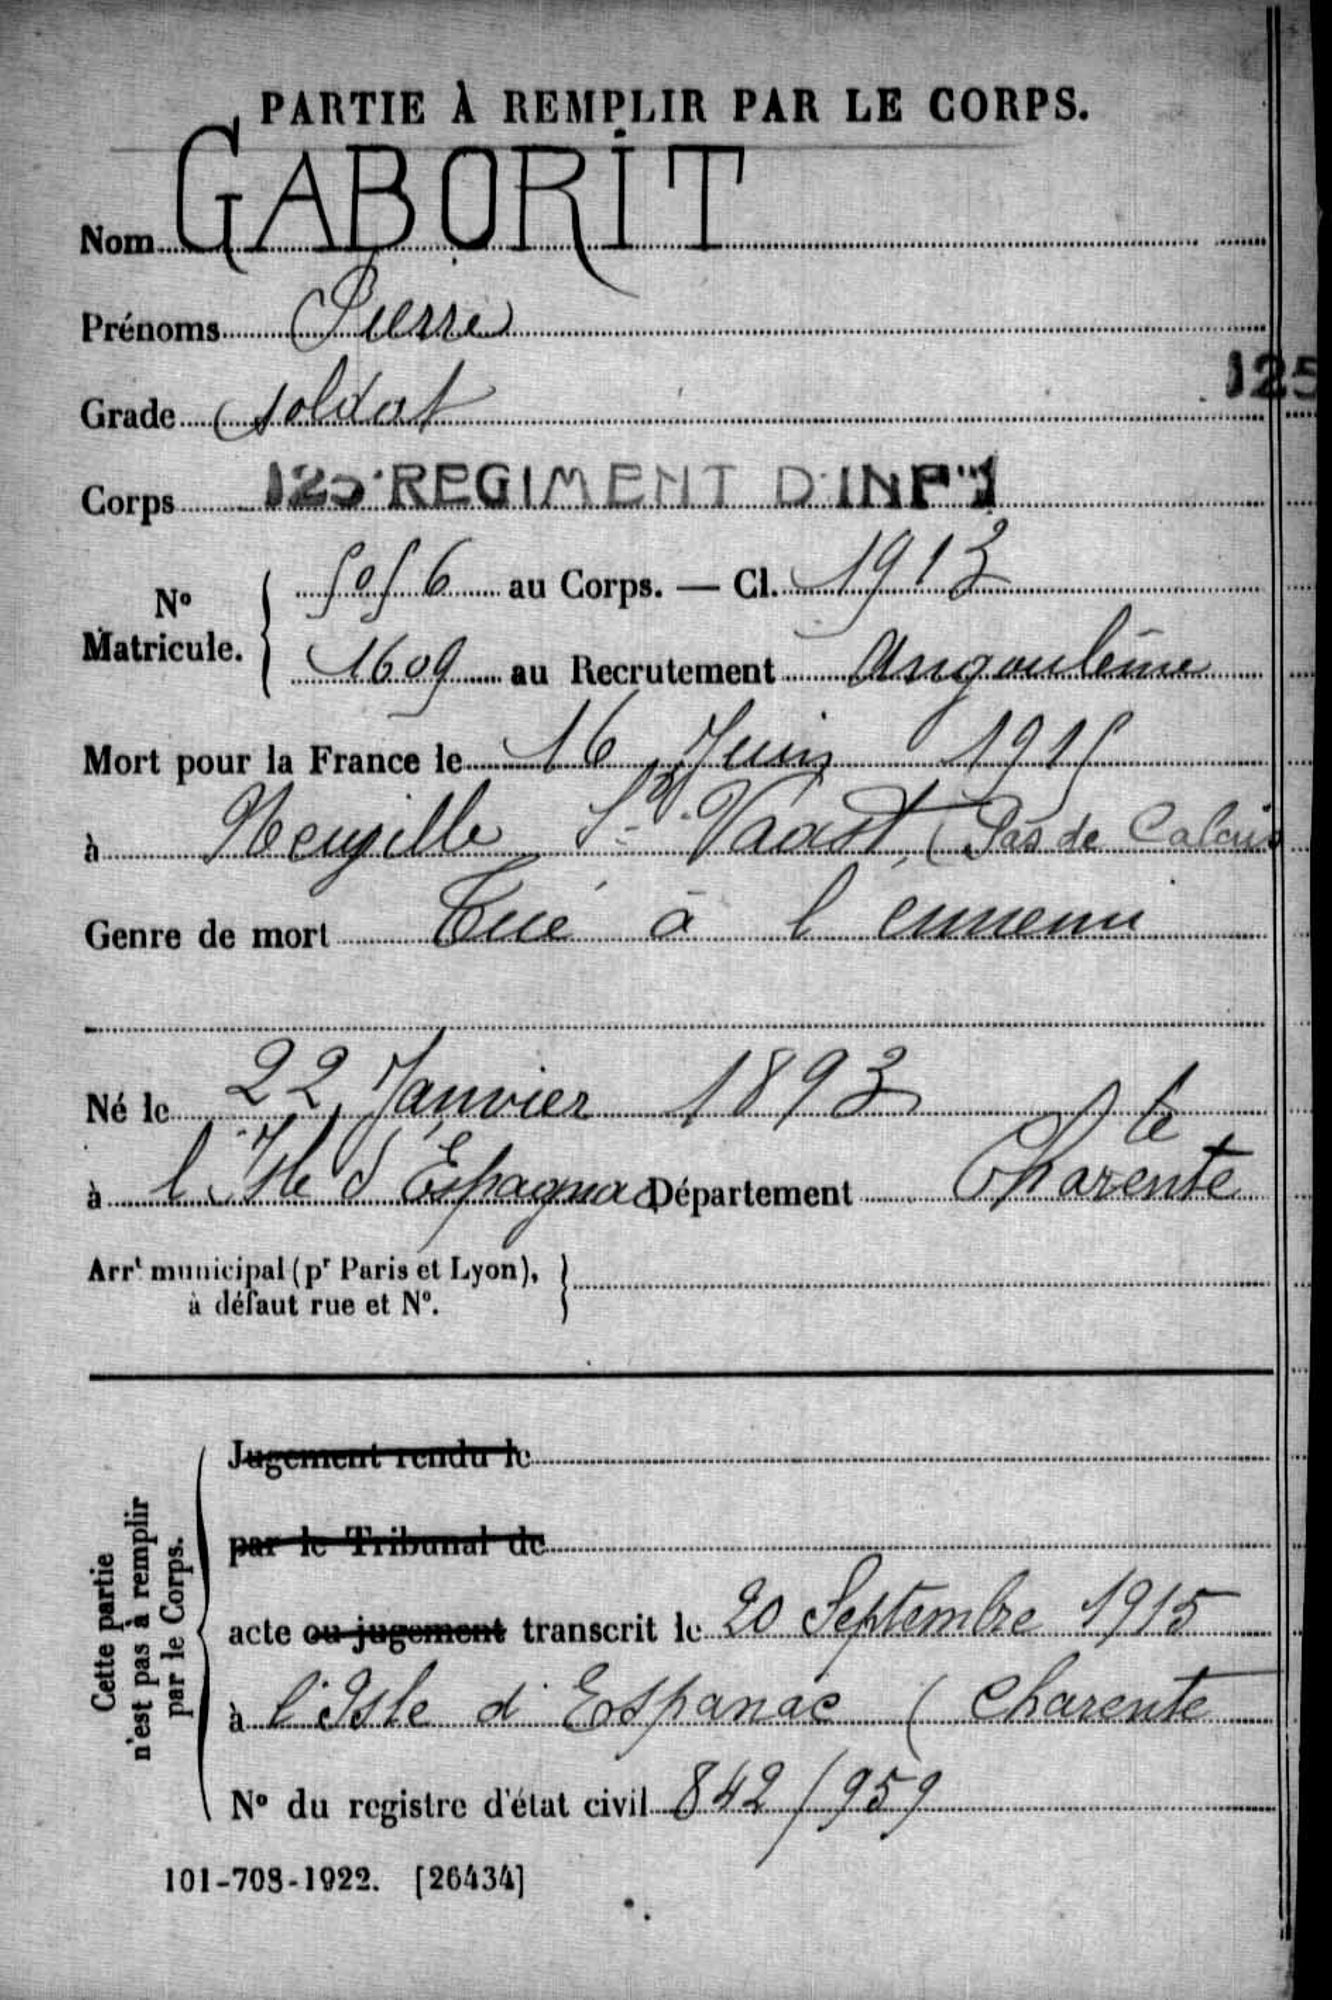 PARTIE À REMPLIR PAR LE CORPS.
Nom GABORIT
Prénoms Pierre
Grade soldat
125
Corps 125 REGIMENT D'INF
N° Matricule. 5056 au Corps. — Cl. 1913
1609 au Recrutement Angoulême
Mort pour la France le 16 Juin 1915
à Neuville St Vaast (Pas de Calais
Genre de mort Tué à l'ennemi
Né le 22 Janvier 1893
à l'Isle d'Espagnac Département Charente
Arrt municipal (pr Paris et Lyon),
à défaut rue et N°.
Cette partie
n'est pas à remplir
par le Corps.
Jugement rendu le
par le Tribunal de
acte ou jugement transcrit le 20 Septembre 1915
à l'Isle d'Espanac (Charente
N° du registre d'état civil 842/959
101-708-1922. [26434]